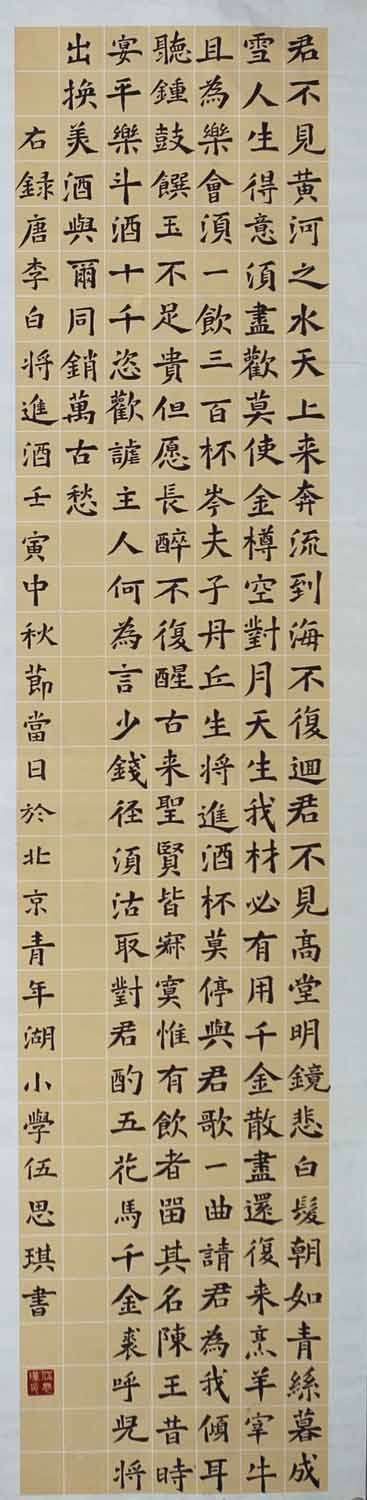 君不見黄河之水天上来奔流到海不復迴君不見高堂明鏡悲白髮朝如青絲暮成
雪人生得意須盡歡莫使金樽空對月天生我材必有用千金散盡還復来烹羊宰牛
且為樂會須一飲三百杯岑夫子丹丘生将進酒杯莫停與君歌一曲請君為我傾耳
聽鍾鼓饌玉不足貴但愿長醉不復醒古来聖賢皆寂寞惟有飲者留其名陳王昔時
宴平樂斗酒十千恣歡謔主人何為言少錢径須沽取對君酌五花馬千金裘呼児将
出換美酒與爾同銷萬古愁
右録唐李白将進酒壬寅中秋節當日於北京青年湖小學伍思琪書